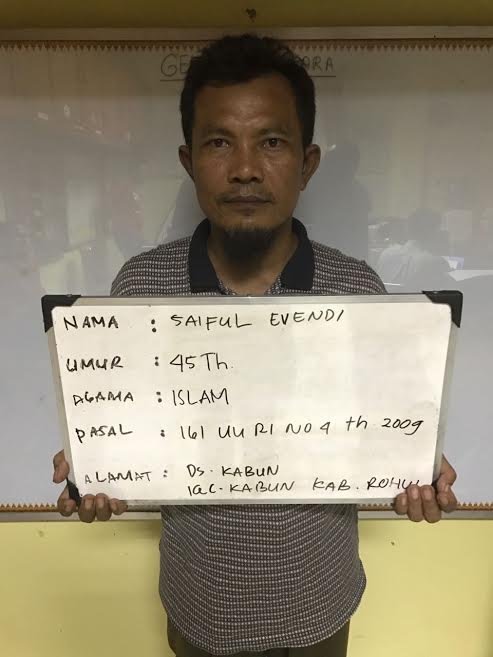 NAMA : SAIFUL EVENDI
UMUR : 45 Th.
AGAMA : ISLAM
PASAL : 161 UU RI NO 4 th 2009
ALAMAT : DS. KABUN
KEC. KABUN KAB. ROHUL